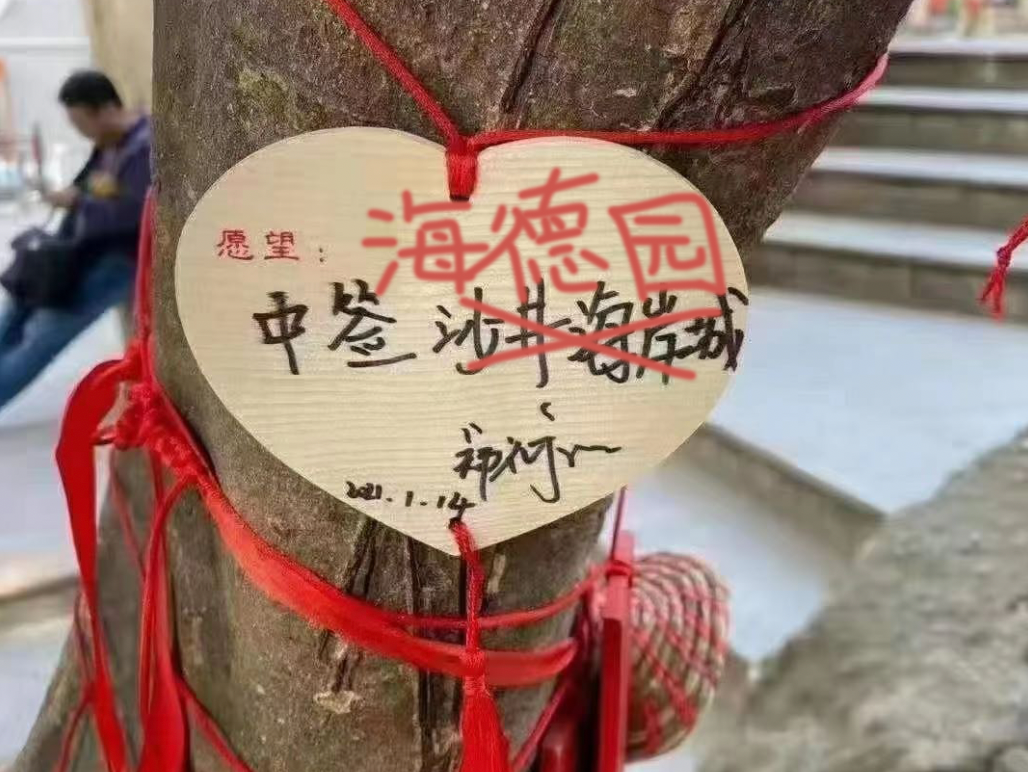 愿望：
海德园
中签 沙井海岸城
2021.1.14